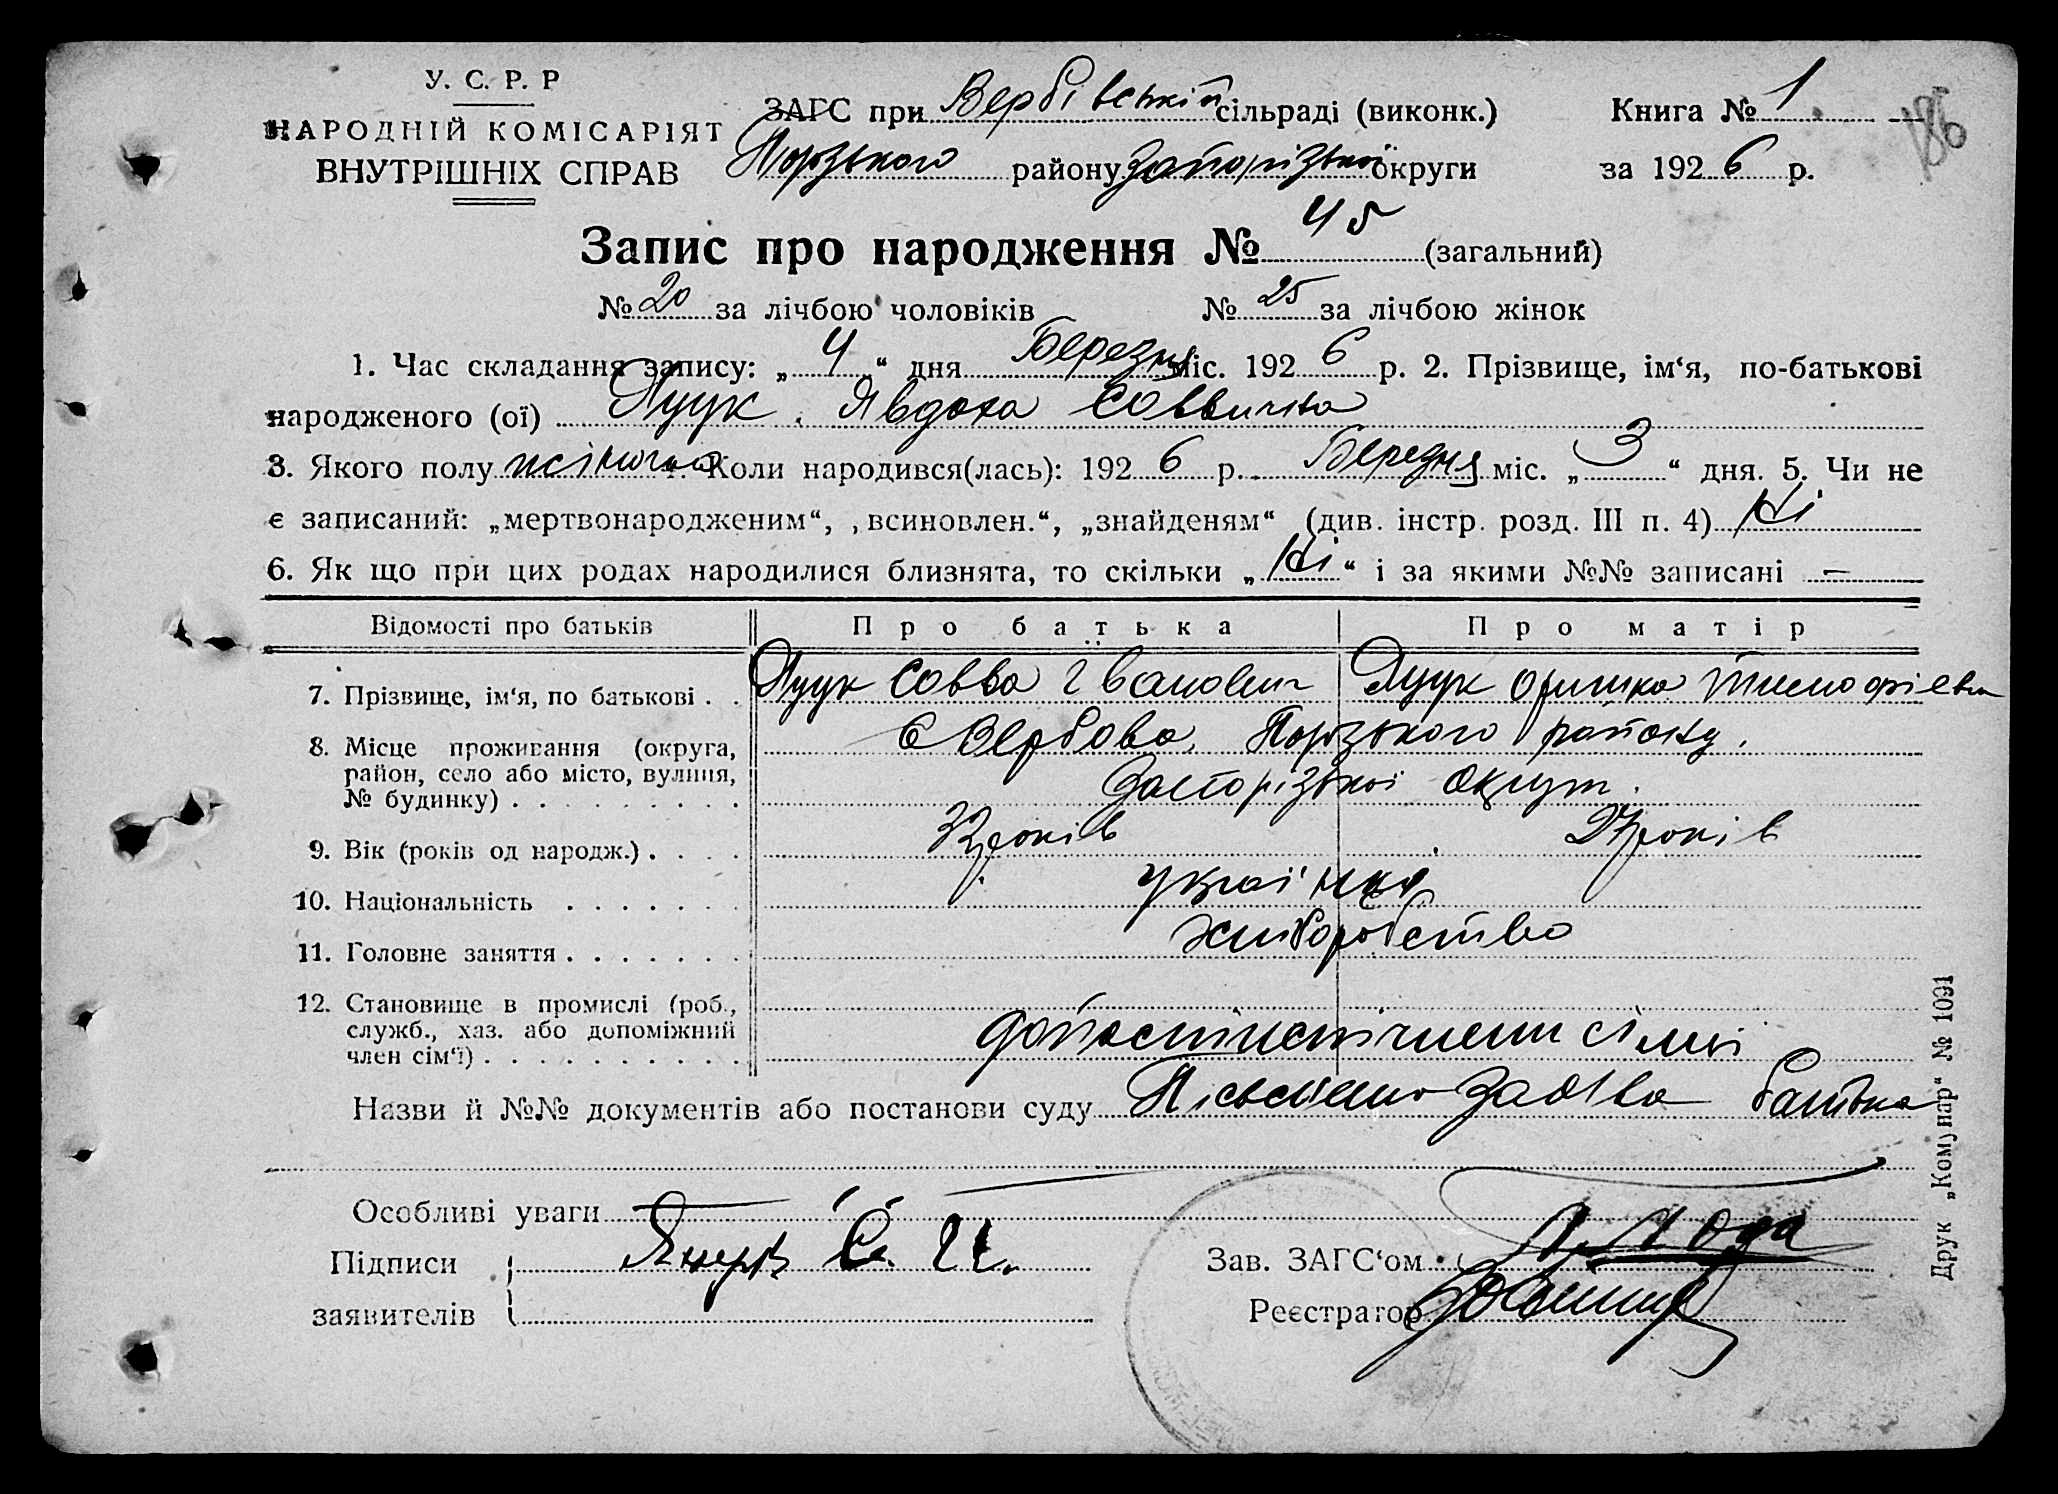 У. С. Р. Р
НАРОДНІЙ КОМІСАРІЯТ
ВНУТРІШНІХ СПРАВ
ЗАГС при Вербівській сільраді (виконк.)
району Запорізької округи
Книга № 1
за 1926 р.
186
Запис про народження № 45 (загальний)
№ 20 за лічбою чоловіків № 25 за лічбою жінок
1. Час складання запису: „ 4 “ дня Березня міс. 1926 р. 2. Прізвище, ім‘я, по-батькові
народженого (ої) Явдоха Саввична
3. Якого полу жіночого 4. Коли народився(лась): 1926 р. Березня міс. „ 3 “ дня. 5. Чи не
є записаний: „мертвонародженим“, „всиновлен.“, „знайденям“ (див. інстр. розд. III п. 4) Ні
6. Як що при цих родах народилися близнята, то скільки „ Ні “ і за якими №№ записані —
Відомості про батьків Про батька Про матір
7. Прізвище, ім‘я, по батькові . . Савва Іванович Оришка
8. Місце проживання (округа, район, село або місто, вулиця, № будинку) . . . . . . . . . с Вербова, району, Запорізької округи.
9. Вік (років од народж.) . . . . 32 років 27 років
10. Національність . . . . . . . українці
11. Головне заняття . . . . . . . хліборобство
12. Становище в промислі (роб., служб., хаз. або допоміжний член сім‘ї) . . . . . . . . . .
Назви й №№ документів або постанови суду заява батька
Особливі уваги
Підписи
заявителів
Зав. ЗАГС‘ом
Реєстратор
Друк „Комунар“ № 1091